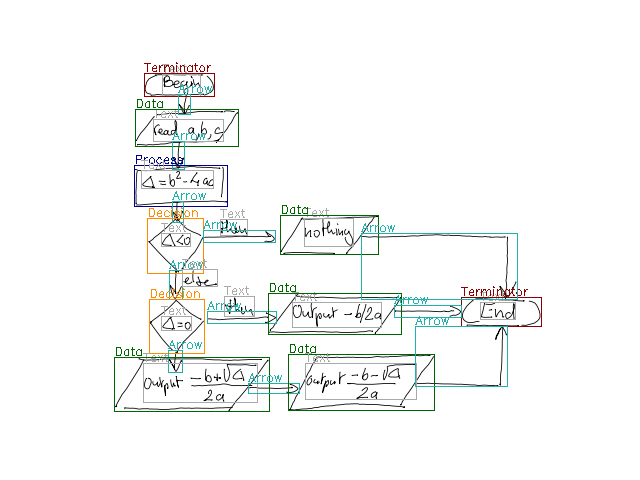 Terminator
Begin
Arrow
Data
Text
read a,b,c
Arrow
Process
Text
Δ = b² - 4ac
Arrow
Decision
Text
Δ<0
Arrow
Text
then
Data
Text
nothing
Arrow
Arrow
Text
else
Decision
Text
Δ=0
Arrow
Text
then
Data
Text
Output -b/2a
Arrow
Terminator
Text
End
Arrow
Data
Text
Output -b+√Δ
2a
Arrow
Data
Text
output -b-√Δ
2a
Arrow